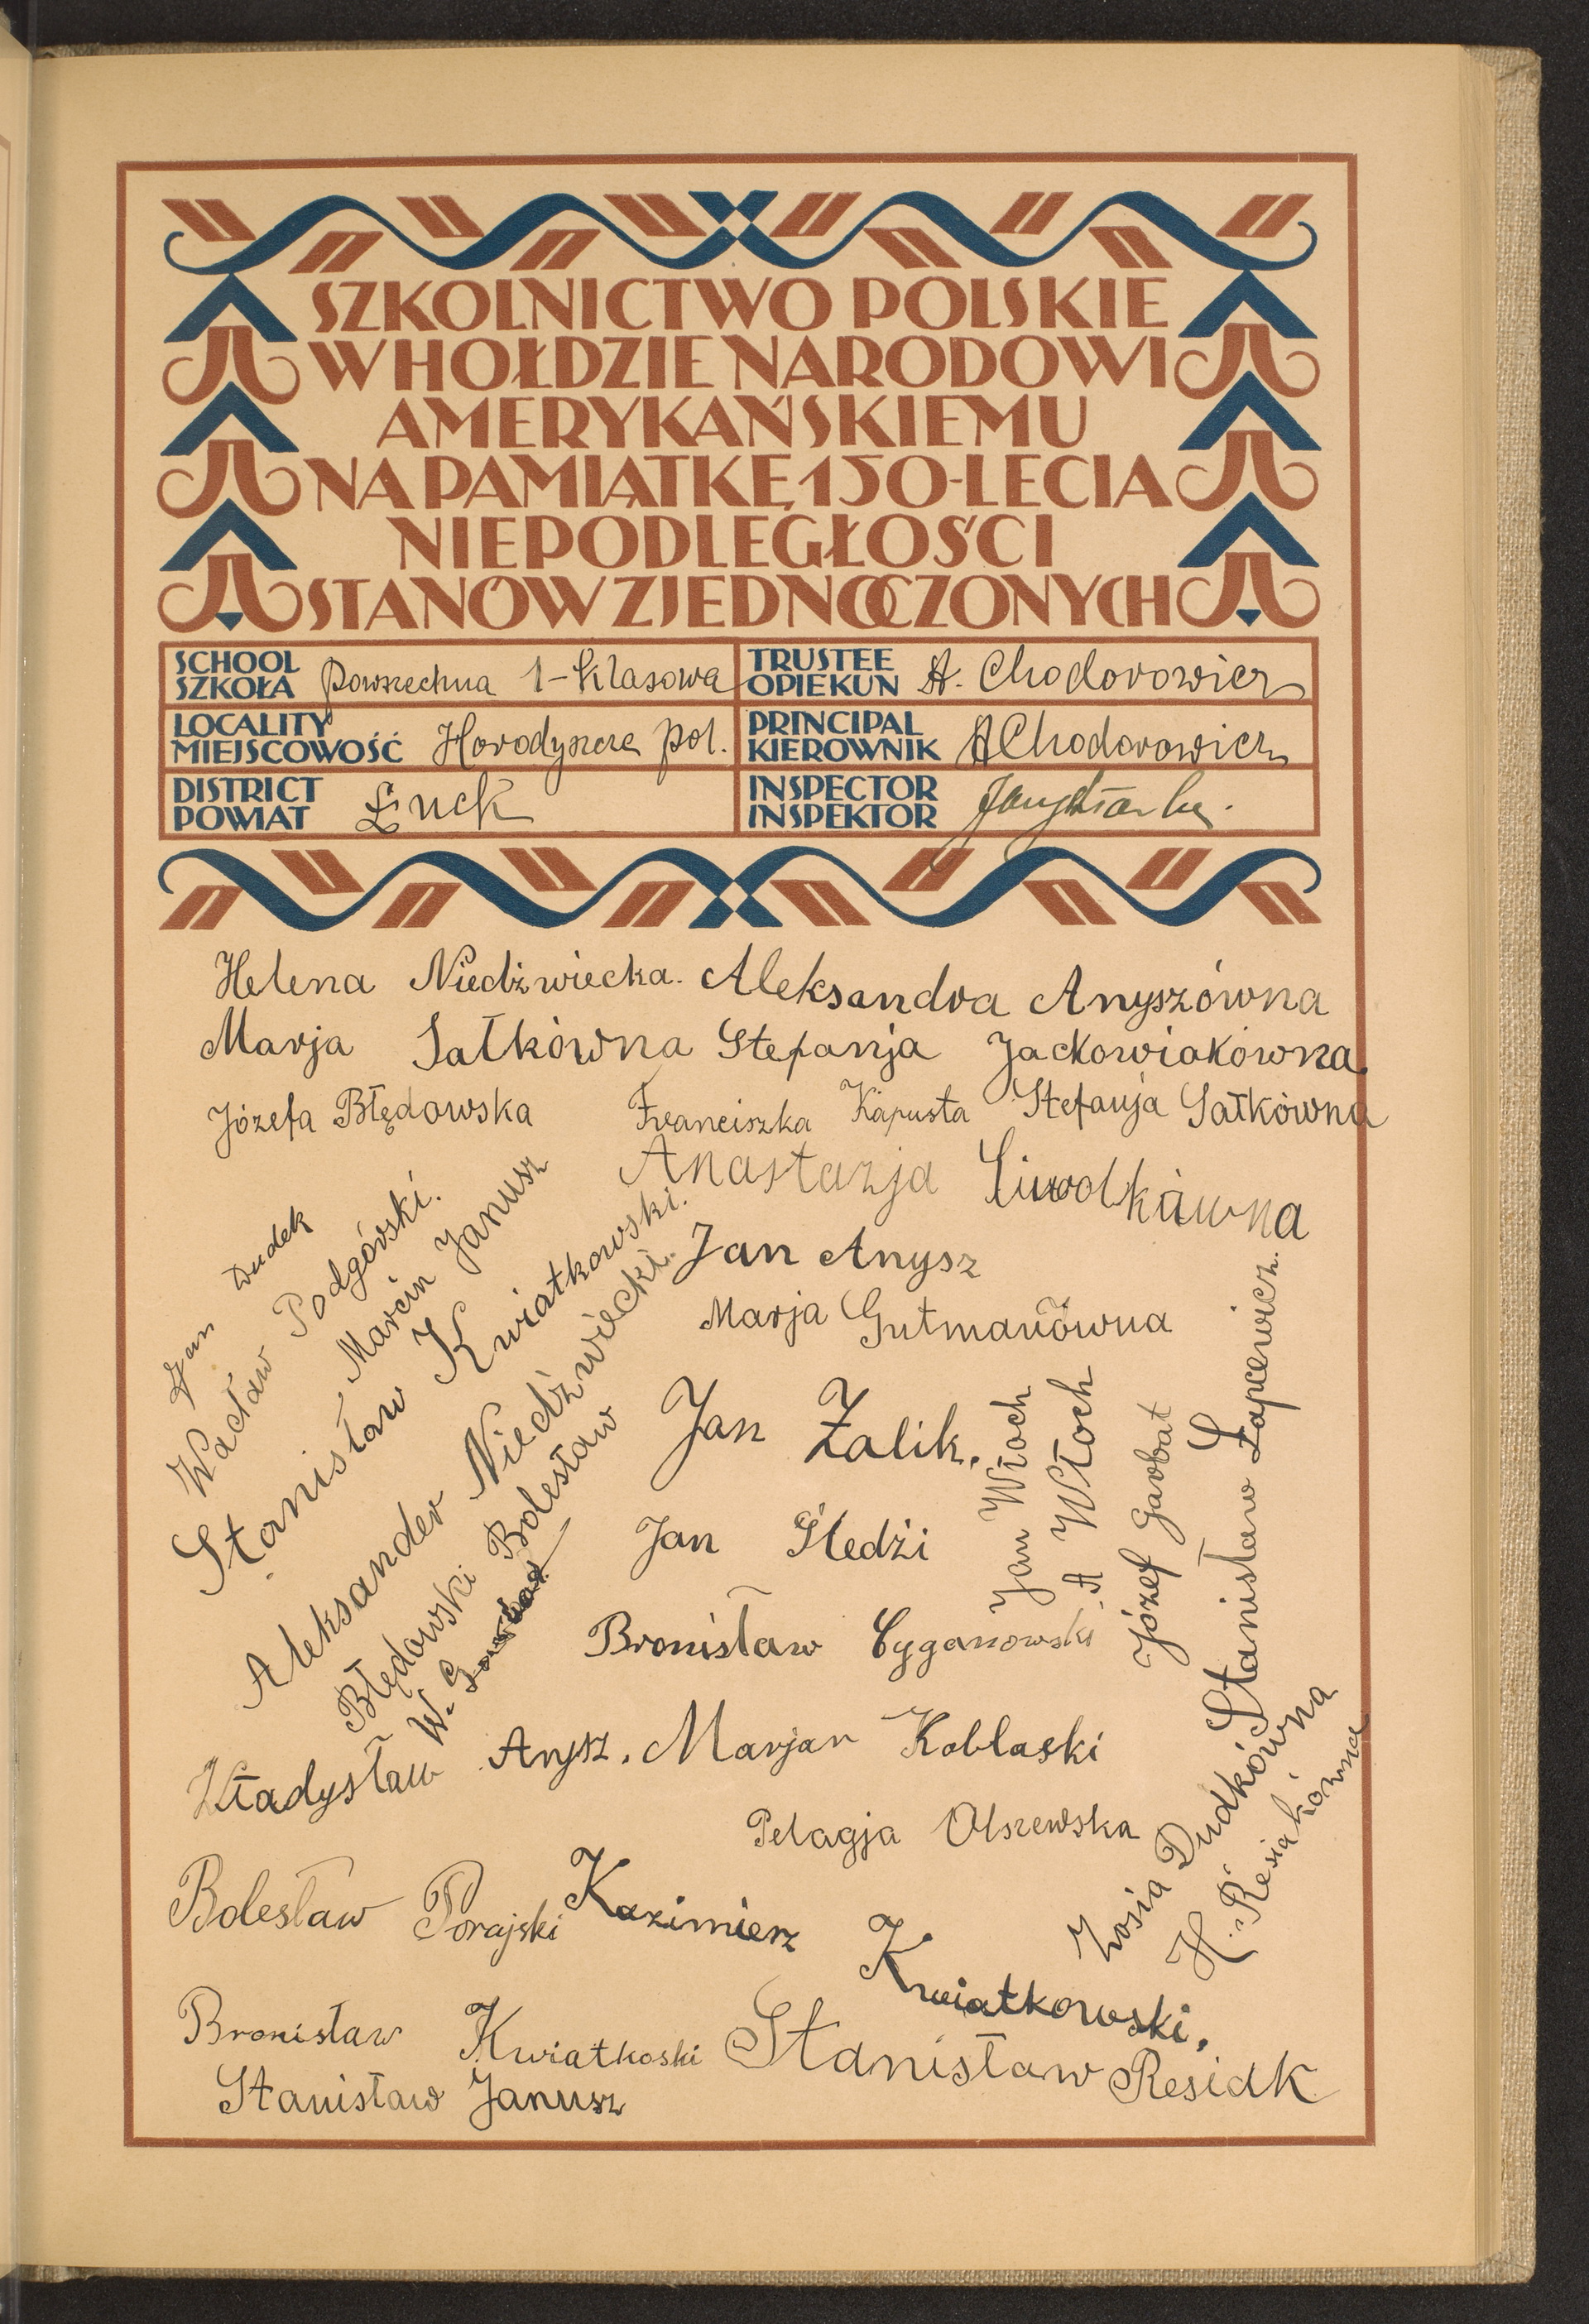 SZKOLNICTWO POLSKIE
W HOŁDZIE NARODOWI
AMERYKAŃSKIEMU
NA PAMIĄTKĘ 150-LECIA
NIEPODLEGŁOŚCI
STANÓW ZJEDNOCZONYCH
SCHOOL
SZKOŁA Powszechna 1-klasowa
TRUSTEE
OPIEKUN A. Chodorowicz
LOCALITY
MIEJSCOWOŚĆ Horodyszcze pol.
PRINCIPAL
KIEROWNIK A Chodorowicz
DISTRICT
POWIAT Łuck
INSPECTOR
INSPEKTOR
Helena Niedźwiecka. Aleksandra Anyszówna
Marja Sałkówna Stefanja Jackowiakówna.
Józefa Błędowska Franciszka Kapusta Stefanja Sałkówna
Anastazja
Jan Dudek
Wacław Podgórski.
Marcin Janusz
Stanisław Kwiatkowski.
Aleksander Niedźwiecki.
Błędowski Bolesław
W.
Jan Anysz
Marja Gutmanówna
Jan Żalik.
Jan Śledzi
Jan Włoch
A Włoch
Józef Garbat
Stanisław Łapcewicz.
Bronisław Cyganowski
Władysław Anysz. Marjan Koblaski
Pelagja Olszewska
Zosia Dudkówna
H. Resiakówna
Bolesław Porajski Kazimierz Kwiatkowski.
Bronisław Kwiatkoski Stanisław Resiak
Stanisław Janusz